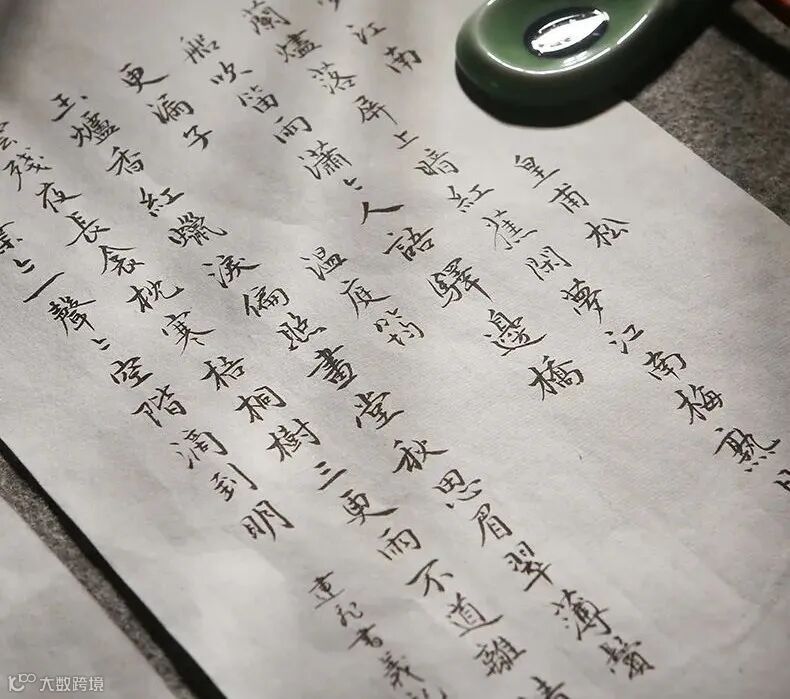 江南 皇甫松
蘭燼落屏上暗紅蕉閑夢江南梅熟日
船吹笛雨瀟〻人語驛邊橋
更漏子 溫庭筠
玉爐香紅蠟淚偏照畫堂秋思眉翠薄鬢
雲殘夜長衾枕寒梧桐樹三更雨不道離情
葉〻一聲〻空階滴到明
大数跨境